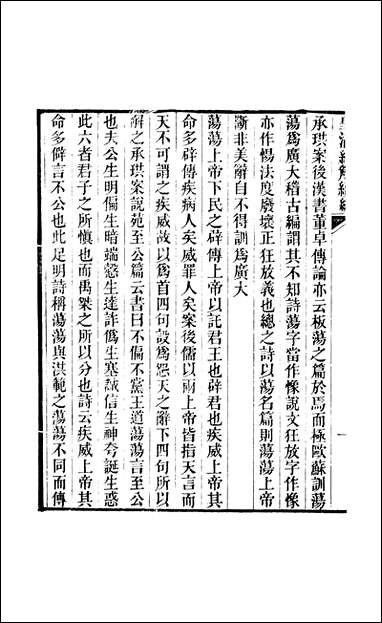 皇清經解續編
承珙案後漢書董卓傳論亦云板蕩之篇於焉而極歐蘇訓蕩
蕩爲廣大稽古編謂其不知詩蕩字當作惕說文狂放字作像
亦作惕法度廢壞正狂放義也總之詩以蕩名篇則蕩蕩上帝
漸非美辭自不得訓爲廣大
蕩蕩上帝下民之辟傳上帝以託君王也辟君也疾威上帝其
命多辟傳疾病人矣威罪人矣案後儒以兩上帝皆指天言而
天不可謂之疾威故以爲首四句設爲怨天之辭下四句所以
解之承珙案說苑至公篇云書曰不偏不黨王道蕩蕩言至公
也夫公生明偏生暗端愨生達詐僞生塞誠信生神夸誕生惑
此六者君子之所愼也而禹桀之所以分也詩云疾威上帝其
命多僻言不公也此足明詩稱蕩蕩與洪範之蕩蕩不同而傳